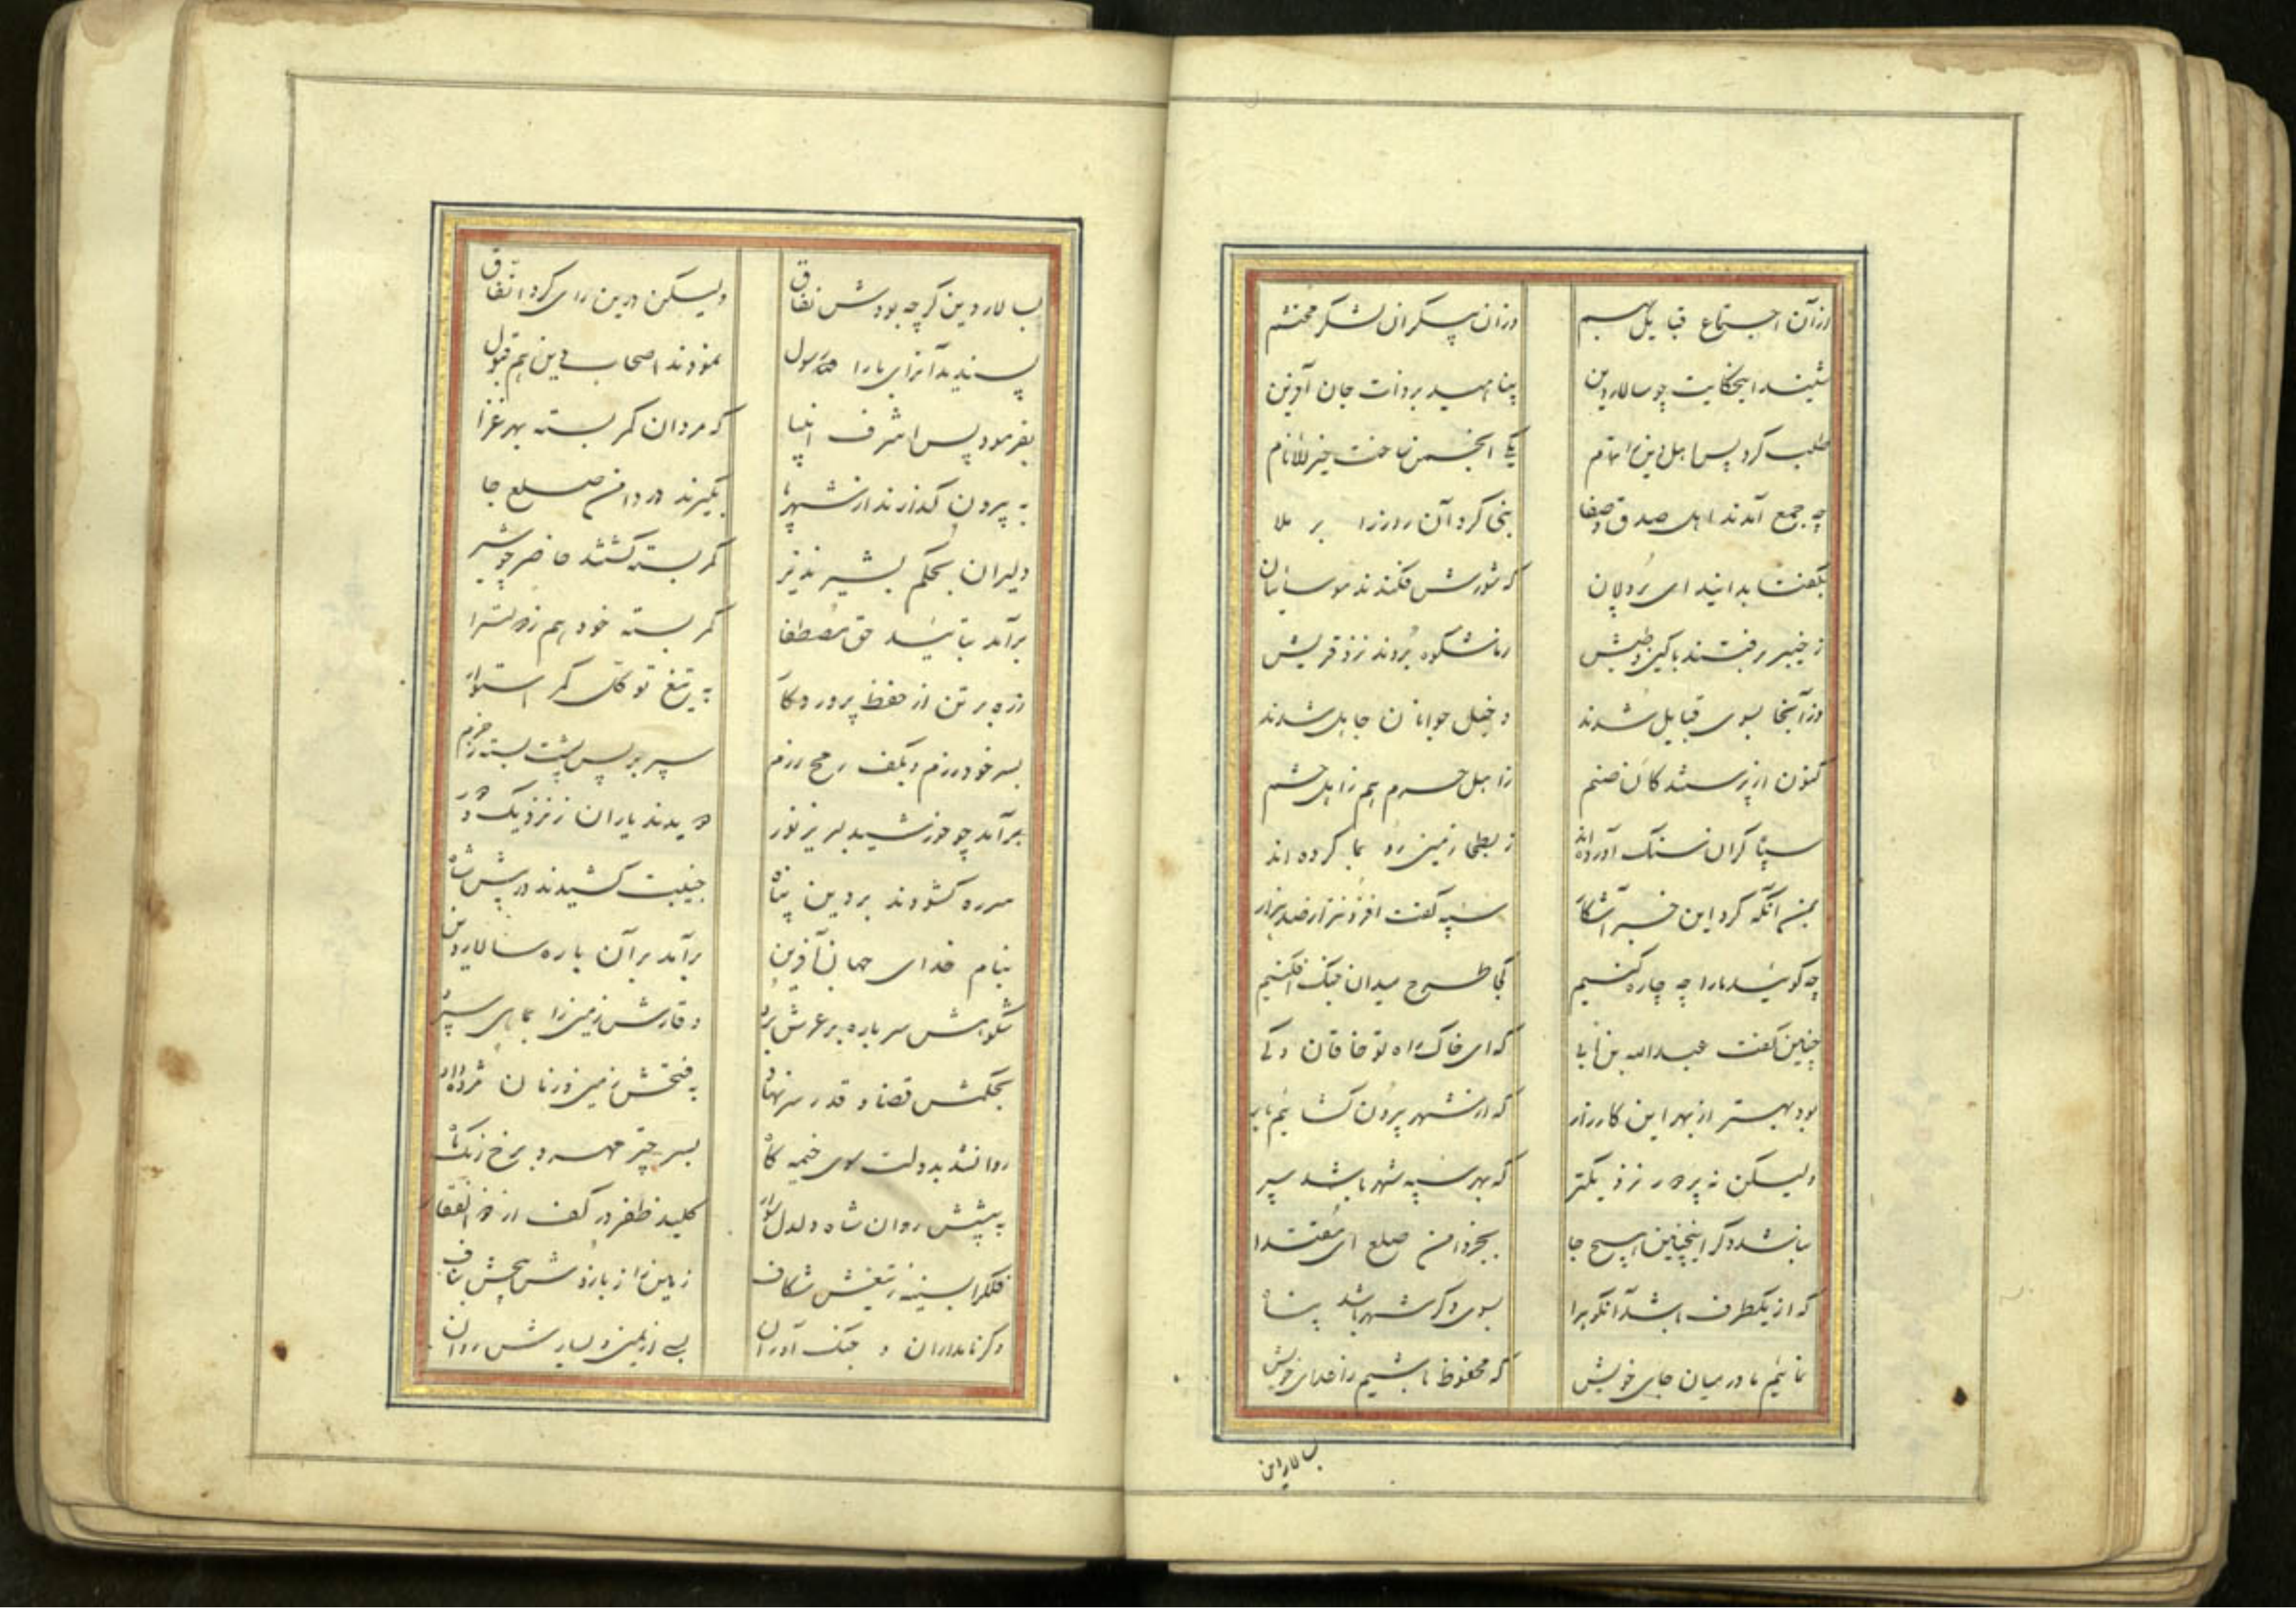 وزان اجتماع قبایل بهم وزان بیکران لشکر محتشم
شنید اینحکایت چو سالار دین پنا امید بر ذات جان آفرین
طلب کرد پس اهل دین را تمام یکی انجمن ساخت خیر الانام
چه جمع آمدند اهل صدق و صفا بنی کرد آن روز را بر ملا
بگفتا بدانید ای پردلان که شورش فکندند موسائیان
ز خیبر برفتند با کین و طیش و شکوه بردند نزد قریش
وز آنجا بسوی قبایل شدند دخیل جوانان جاهل شدند
کنون از پرستندکان صنم ز اهل حرم هم ز اهل حشم
سپا کران سنک آورده اند ز بطحا زمین رو بما کرده اند
بمن آنکه کرد این خبر آشکار سپه گفت افزونتر از صد هزار
چه کوئید ما را چه چاره کنیم کجا طرح میدان جنک افکنیم
چنین گفت عبدالله بن ابی که ای خاک راه تو خاقان و کی
بود بهتر از بهر این کارزار که از شهر بیرون کشائیم بار
ولیکن نه پر دور نزدیکتر که بهر سپه شهر باشد سپر
نباشد دکر اینچنین هیچ جا بجز دامن صلع ای مقتدا
که از یکطرف باشد آنکوه را بسوی دکر شهر باشد پناه
نمائیم ما در میان جای خویش که محفوظ باشیم ز اعدای خویش
بسالار دین
بسالار دین کرچه بودش نفاق ولیکن درین رای کرد اتفاق
پسندید آنرای را رسول نمودند اصحاب دین هم قبول
بفرمود پس اشرف انبیا که مردان کمر بسته بهر غزا
به بیرون کذارند از شهر پا بکیرند در دامن صلع جا
دلیران بحکم بشیر نذیر کمر بسته کشتند حاضر چو شیر
برآمد بتائید حق مصطفا کمر بسته خود هم ز دولتسرا
زره بر تن از حفظ پروردکار به تیغ توکل کمر استوار
بسر خود رزم و بکف رمح رزم سپر بر پس پشت بسته ز حزم
برآمد چو خورشید لبریز نور دویدند یاران ز نزدیک و دور
سر ره کشودند بر دین پناه جنیبت کشیدند در پیش شاه
بنام خدای جهان آفرین برآمد بر آن باره سالار دین
شکوهش سر باره بر عرش برد وقارش زمین را بما پای سپرد
بحکمش قضا و قدر سر نهاد به فتحش زمین و زمان مژده داد
روانشد بدولت سوی خیمه کاه بسر چتر مهر و برخ زنک ماه
به پیشش روان شاه دلدل سوار کلید ظفر در کف از ذوالفقار
فلک را بسینه ز تیغش شکاف زمین را ز بازوش پیچش بناف
دکر نامداران و جنک آوران بسی از یمین و یسارش روان